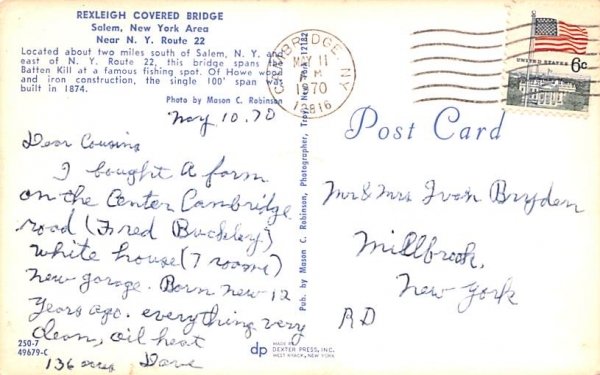 REXLEIGH COVERED BRIDGE
Salem, New York Area
Near N. Y. Route 22
Located about two miles south of Salem, N. Y. and
east of N. Y. Route 22, this bridge spans the
Batten Kill at a famous fishing spot. Of Howe wood
and iron construction, the single 100' span
built in 1874.
Photo by Mason C. Robinson
CAMBRIDGE, NY
MAY 11
PM
1970
12816
UNITED STATES 6c
May 10. 70
Dear Cousins
I bought a farm
on the Center Cambridge
road (Fred Buckley)
white house (7 rooms)
new garage. Barn new 12
years ago. everything very
clean, oil heat
136 acres Dave
250-7
49679-C
Pub. by Mason C. Robinson, Photographer, Troy, New York 12182
dp
MADE BY
DEXTER PRESS, INC.
WEST NYACK, NEW YORK
Post Card
Mr & Mrs Ivan Bryden
Millbrook,
New York
RD